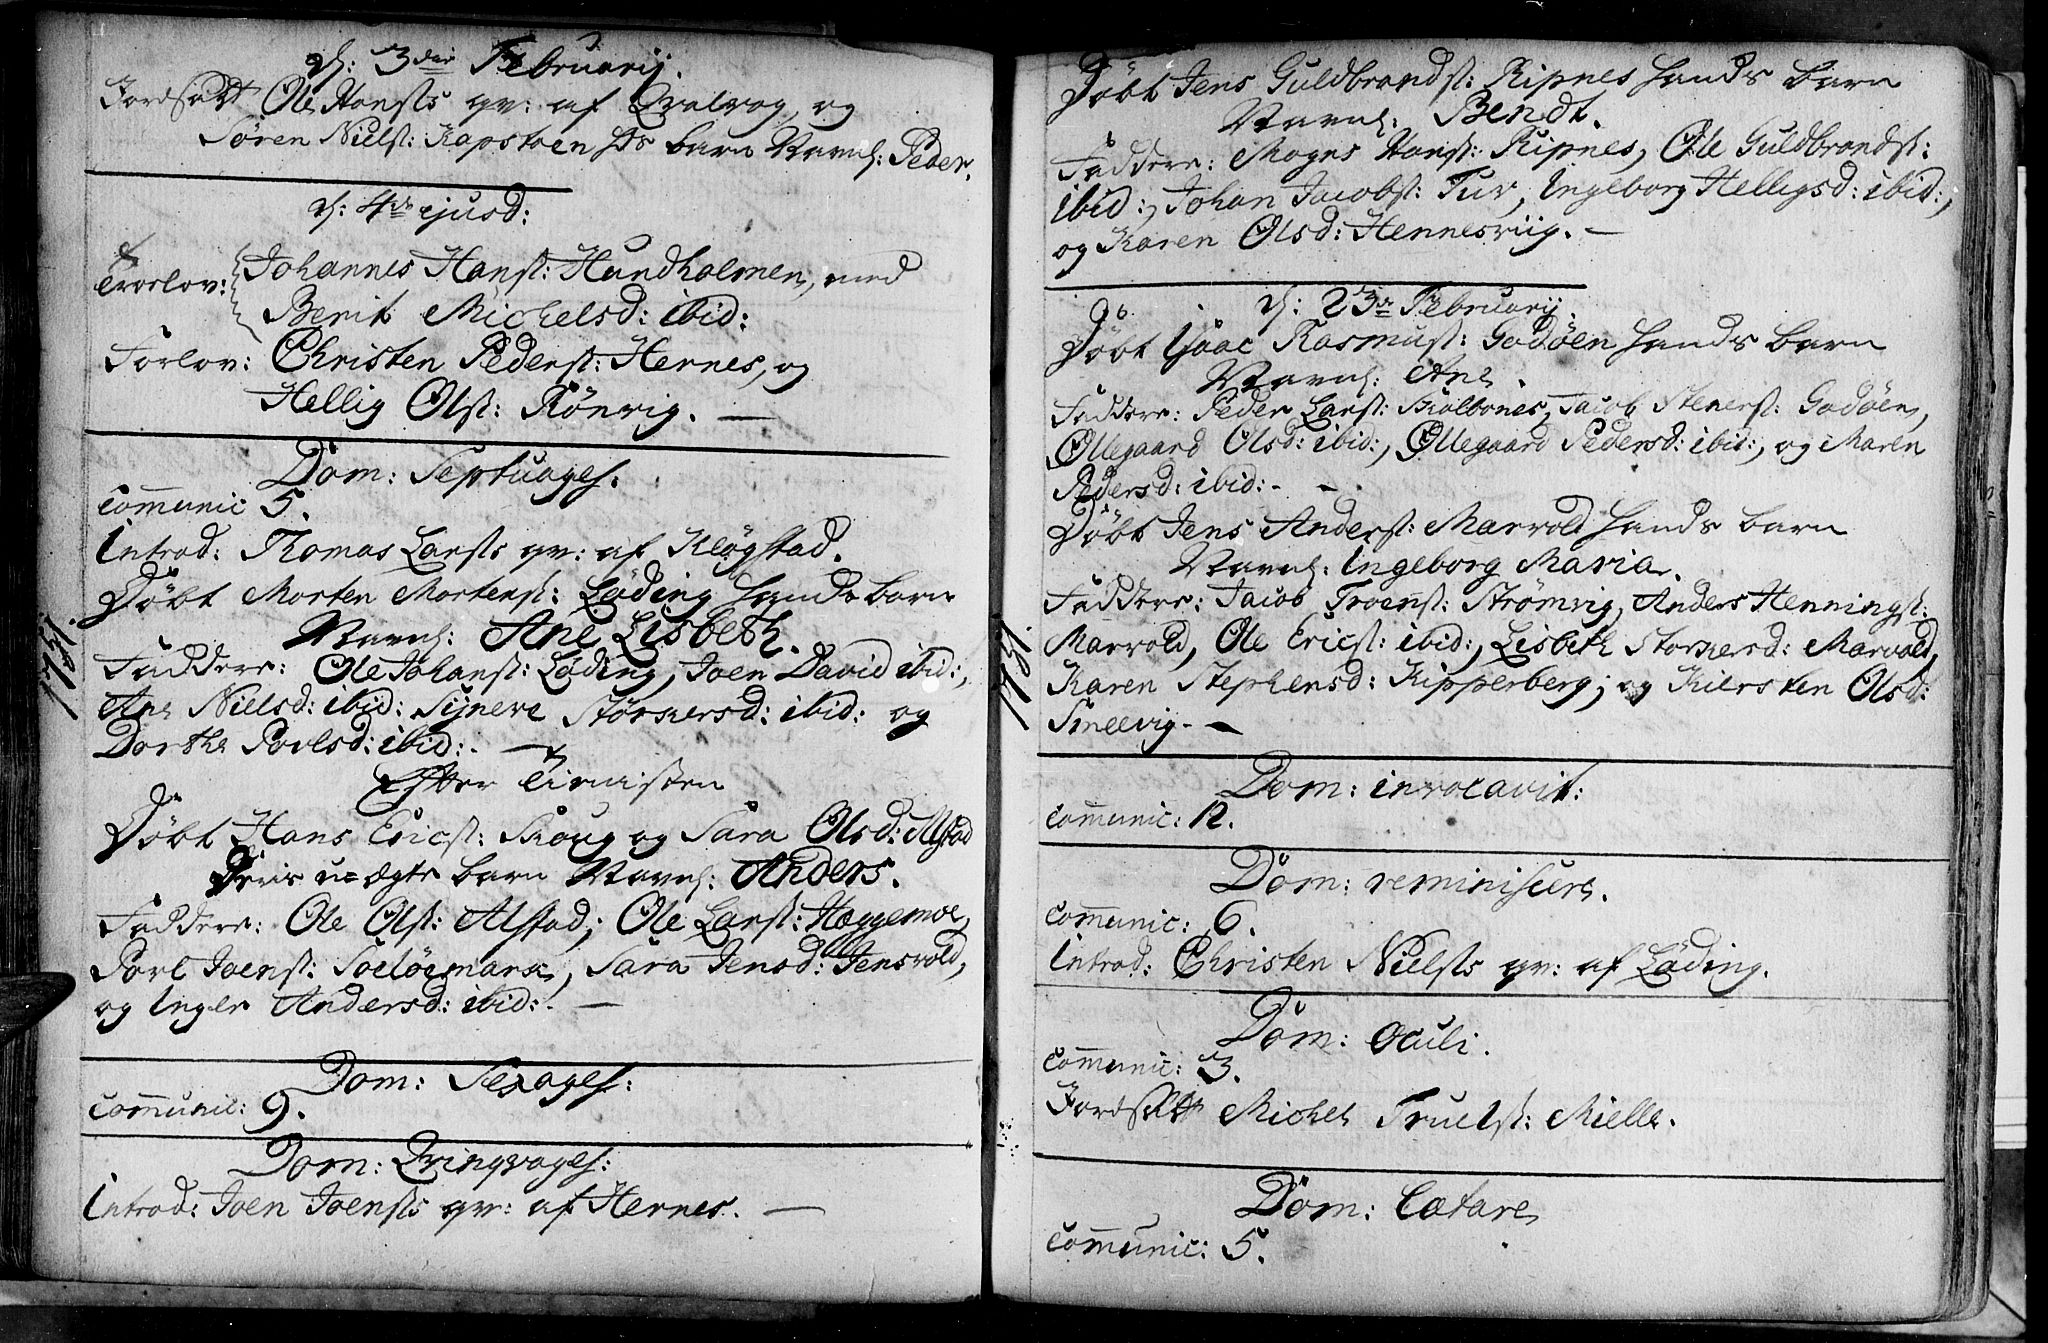 d: 3die Februarij.
Jordsatt Ole Hansts qv: af Qvalvog, og
Søren Nielst: Kapstoen hs barn Navnl: Peder.
d: 4de ejusd:
Trorlov: Johannes Hanst: Hundholmen, med
Berit Michelsd: ibid:
Forlov: Christen Pederst: Hernes, og
Hellig Olst: Rönvig.
Dom: Septuages.
Communic 5.
Introd: Thomas Larsts qv: af Kløgstad.
Döbt Morten Mortenst: Løding hands barn
Navnl: Ane Lisbeth.
Faddere: Ole Johanst: Løding, Joen David ibid:,
Ane Nielsd: ibid: Sijnere Størkersd: ibid: og
Dorthe Povlsd: ibid:
Efter
Döbt Hans Ericst: Skoug og Sara Olsd: Alstad
Deris u=ægte barn Navnl: Anders.
Faddere: Ole Olst: Alstad; Ole Larst: Hæggemoe,
Povl Joenst: Soeløesmark, Sara Jensd: Jensvold,
og Inger Andersd: ibid:
Dom: Sexages:
Communic: 9.
Dom: Qvinqvages:
Introd: Joen Joensts qv: af Hernes.
1731.
Döbt Jens Guldbrandst: Ripnes hands barn
Navnl: Bendt.
Faddere: Mogns Hanst: Ripnes, Ole Guldbrandst:
ibid:, Johan Jacobst: Tuv, Ingeborg Helligsd: ibid:,
og Karen Olsd: Hennesviig.
d: 23de Februarij.
Döbt Isaac Rasmust: Godøen hands barn
Navnl: Ane.
Faddere: Peder Larst: Skolbones, Jacob Stenerst: Godøen,
Ollegaard Olsd: ibid:, Ollegaard Pedersd: ibid:, og Maren
Pedersd: ibid:
Döbt Jens Anderst: Marvold hands barn
Navnl: Ingeborg Maria.
Faddere: Jacob Troenst: Strømvig, Anders Henningst:
Marvold, Ole Ericst: ibid:, Lisbeth Storkersd: Marvold,
Karen Stephensd: Kipperberg; og Kiersten Olsd:
Sneevig.
Dom: invocavit:
Communic: 12.
Dom: reminiscere.
Communic: 6.
Introd: Christen Nielsts qv: af Løding.
Dom: Oculi.
Communic: 3.
Jordsatt Michel Truelst: Mielle.
Dom: Lætare
Communic: 5.
1731.